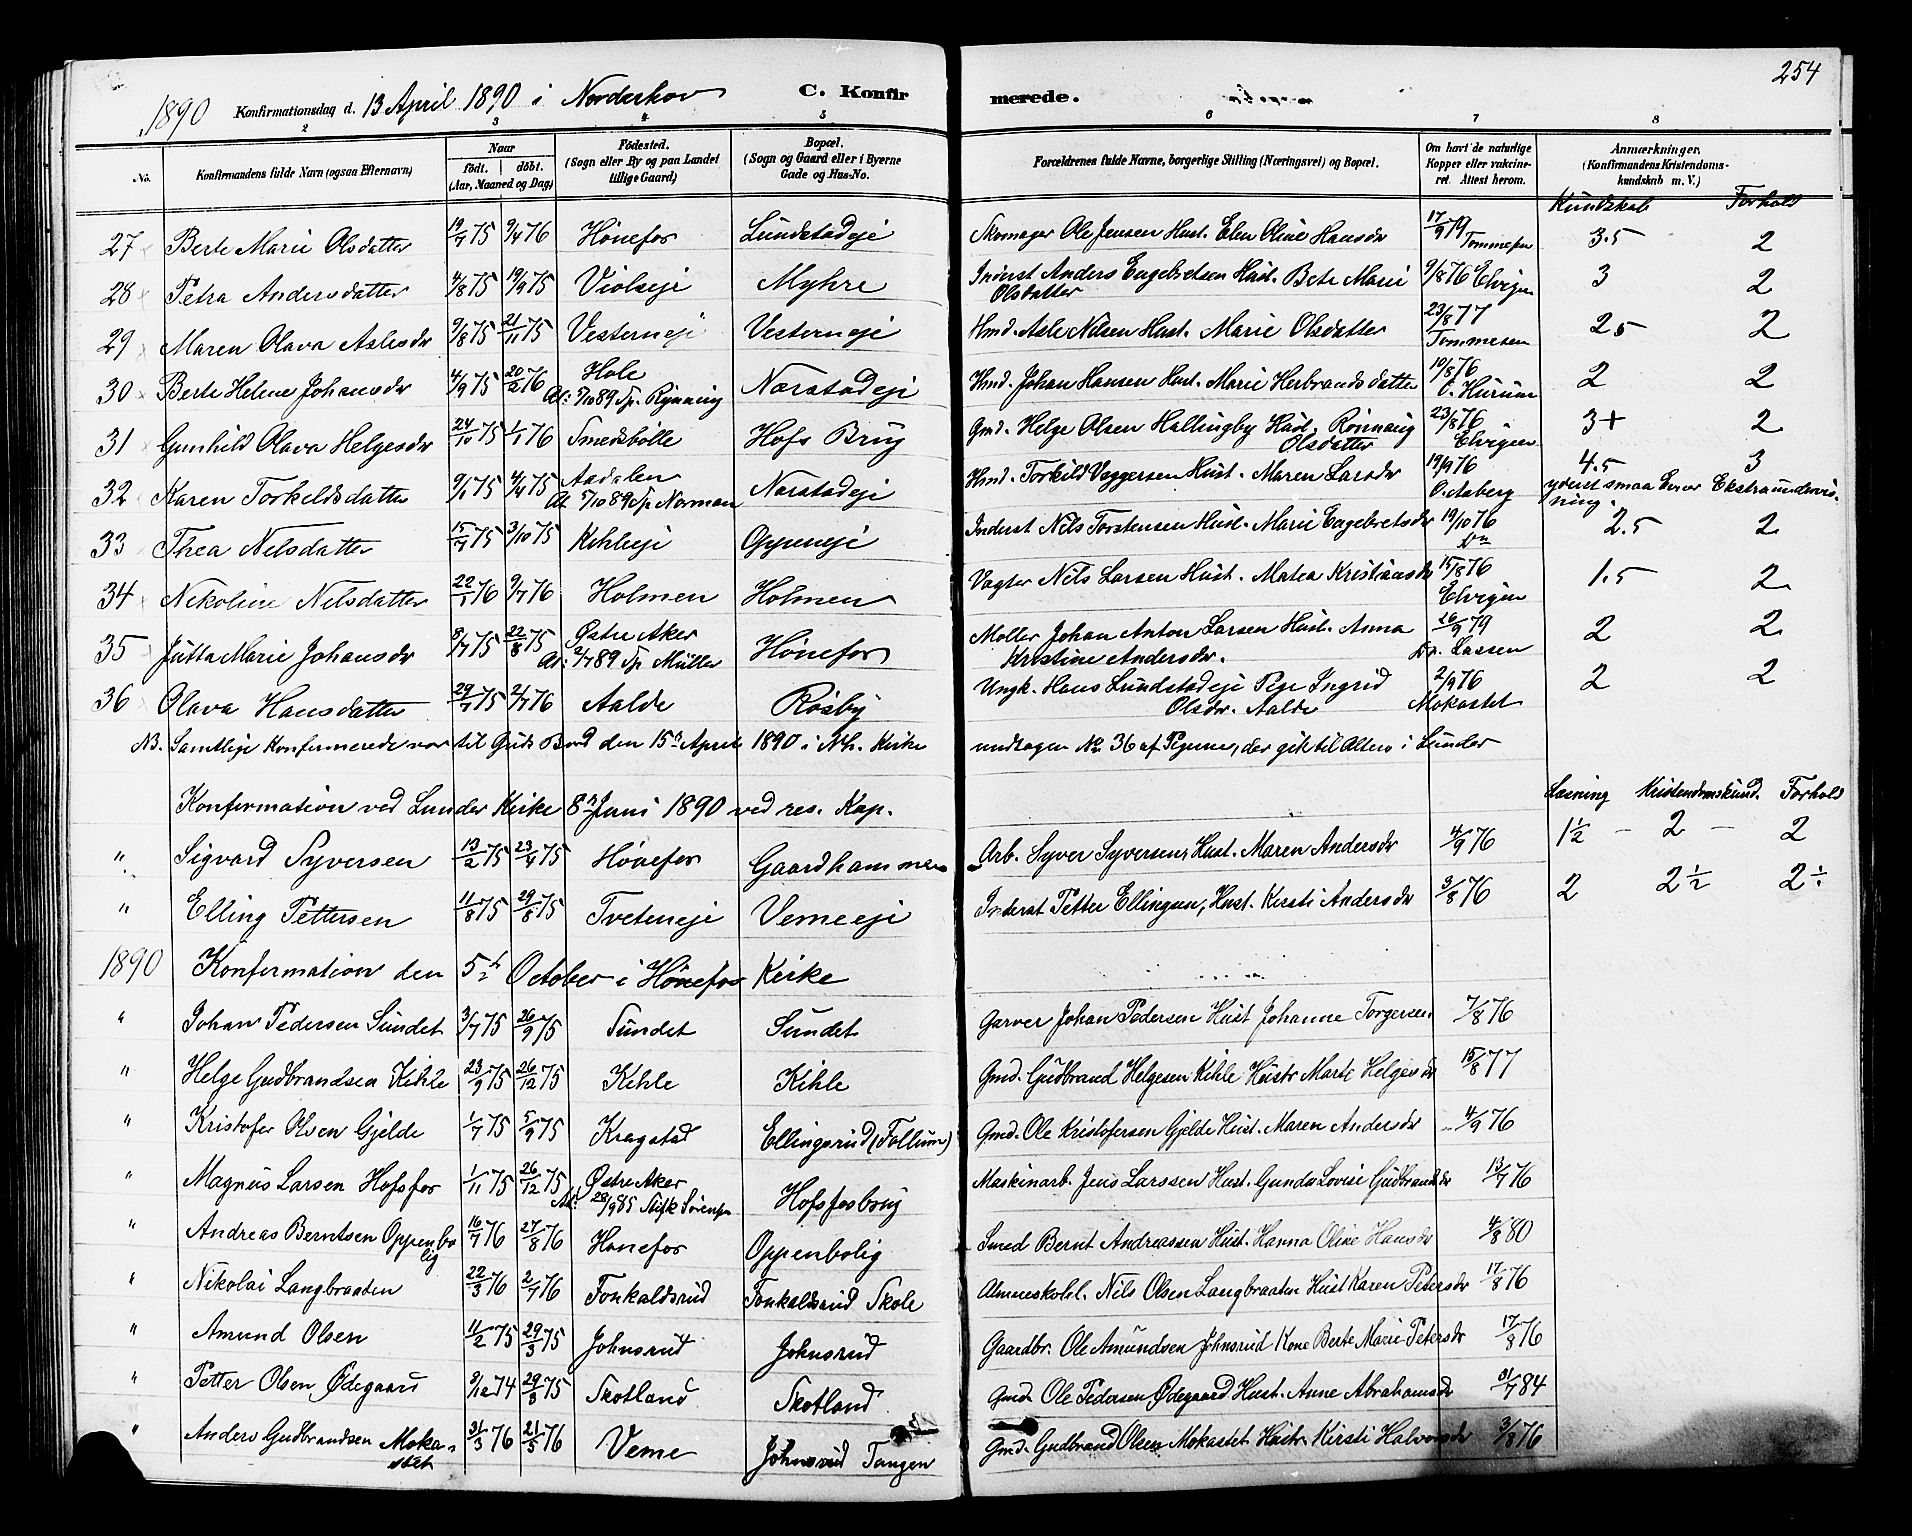 254
1890 Konfirmationsdag d. 13 April 1890 i Norderhov C. Konfirmerede.
2 3 4 5 6 7 8
No. Konfirmandens fulde Navn (ogsaa Efternavn) Naar født. døbt. (Aar, Maaned og Dag) Fødested. (Sogn eller By og paa Landet tillige Gaard) Bopæl. (Sogn og Gaard eller i Byerne Gade og Hus-No. Forældrenes fulde Navne, borgerlige Stilling (Næringsvei) og Bopæl. Om havt de naturlige Kopper eller vaccineret. Attest herom. Anmærkninger. (Konfirmandens Kristendomskundskab m. V.)
Kundskab Forhold
27 Berte Marie Olsdatter 19/7 75 9/4 76 Hønefos Lundstadeje Skomager Ole Jensen Hust. Elen Oline Hansdr 17/9 79 3.5 2
28 Petra Andersdatter 4/8 75 19/9 75 Violseje Myhre Inderst Anders Engebretsen Hust. Bete Marie 9/8 76 Elvigen 3 2
Olsdatter
29 Maren Olava Aslesdr 9/8 75 21/11 75 Vesterneje Vesterneje Hmd. Asle Nilsen Hust. Marie Olsdatter 23/8 77 Tommesen 25 2
30 Berte Helene Johansdr 4/9 75 20/2 76 Hole Narstadeje Hmd. Johan Hansen Hust. Marie Herbrandsdatter 19/8 76 C. Hurum 2 2
At: 5/10 89 Sp. Rynning
31 Gunhild Olava Helgesdr 24/10 75 1/1 76 Smedsbølle Hofs Brug Gmd. Helge Olsen Hallingby Hust. Rønnaug 23/8 76 Elvigen 3+ 2
Olsdatter
32 Karen Torkeldsdatter 9/1 75 4/4 75 Aadalen Narstadeje Hmd. Torkild Veggersen Hust. Maren Larsdr 19/9 76 O. Aaberg 4.5 3
At 5/10 89 Sp. Norman yderst smaa Evner Ekstraundervisning.
33 Thea Nilsdatter 15/7 75 3/10 75 Kihleeje Oppeneje Inderst Nils Torstensen Hust. Marie Engebretsdr 19/10 76 2.5 2
34 Nikoline Nilsdatter 22/1 76 9/7 76 Holmen Holmen Vagter Nils Larsen Hust. Matea Kristiansdr 15/8 76 Elvigen 1.5 2
35 Jutta Marie Johansdr 8/7 75 22/8 75 Østre Aker Hønefos Møller Johan Anton Larsen Hust. Anna 26/9 79 2 2
At: 2/7 89 Sp. Müller Kristine Andersdr. Dr. Lassen
36 Olava Hansdatter 29/7 75 2/7 76 Aalde Røsby Ungk. Hans Lundstadeje Pige Ingrid 2/9 76 2 2
Olsdr. Aalde Mokastet
NB. Samtlige Konfirmerede var til Guds Bord den 15d April 1890 i Nh. Kirke undtagen No 36 af Pigerne, der gik til Alters i Lunder
Konfirmation ved Lunder Kirke 8d Juni 1890 ved res. Kap.
Læsning Kristendomskund. Forhold
" Sigvard Syversen 13/2 75 23/4 75 Hønefos Gaardhammer Arb. Syver Syversen, Hust. Maren Andersdr 4/9 76 1½ - 2 - 2
" Elling Pettersen 11/8 75 29/8 75 Tveteneje Vemeeje Inderst Petter Ellingsen, Hust. Kirsti Andersdr 3/8 76 2 2½ 2÷
1890 Konfirmation den 5te October i Hønefos Kirke
" Johan Pedersen Sundet 3/7 75 26/9 75 Sundet Sundet Garver Johan Pedersen Hust Johanne Torgersen 7/8 76
" Helge Gudbrandsen Kihle 23/9 75 26/12 75 Kihle Kihle Gmd. Gudbrand Helgesen Kihle Hustr Marte Helgesdr 15/8 77
" Kristofer Olsen Gjelde 1/7 75 5/9 75 Kragstad Ellingsrud (Follum) Gmd. Ole Kristofersen Gjelde Hust. Maren Andersdr 4/9 76
" Magnus Larsen Hofsfos 1/11 75 26/12 75 Østre Aker Hofsfosbrug Maskinarb. Jens Larssen Hust. Gunda Lovise Gudbrandsdr 13/7 76
At: 28/9 85
" Andreas Berntsen Oppenbolig 16/7 76 27/8 76 Hønefos Oppenbolig Smed Bernt Andreassen Hust. Hanna Oline Hansdr 4/8 80
" Nikolai Langbraaten 22/3 76 2/7 76 Fonkaldsrud Fonkaldsrud Skole Almueskoll. Nils Olsen Langbraaten Hust Karen Petersdr 17/8 76
" Amund Olsen 11/2 75 29/3 75 Johnsrud Johnsrud Gaardbr. Ole Amundsen Johnsrud Kone Berte Marie Petersdr 17/8 76
" Petter Olsen Ødegaard 9/12 74 29/8 75 Skotland Skotland Gmd. Ole Pedersen Ødegaard Hust. Anne Abrahamsdr 31/7 84
" Anders Gudbrandsen Mokastet 31/3 76 21/5 76 Veme Johnsrud Tangen Gmd. Gudbrand Olsen Mokastet Hustr. Kirsti Halvorsdr 3/8 76